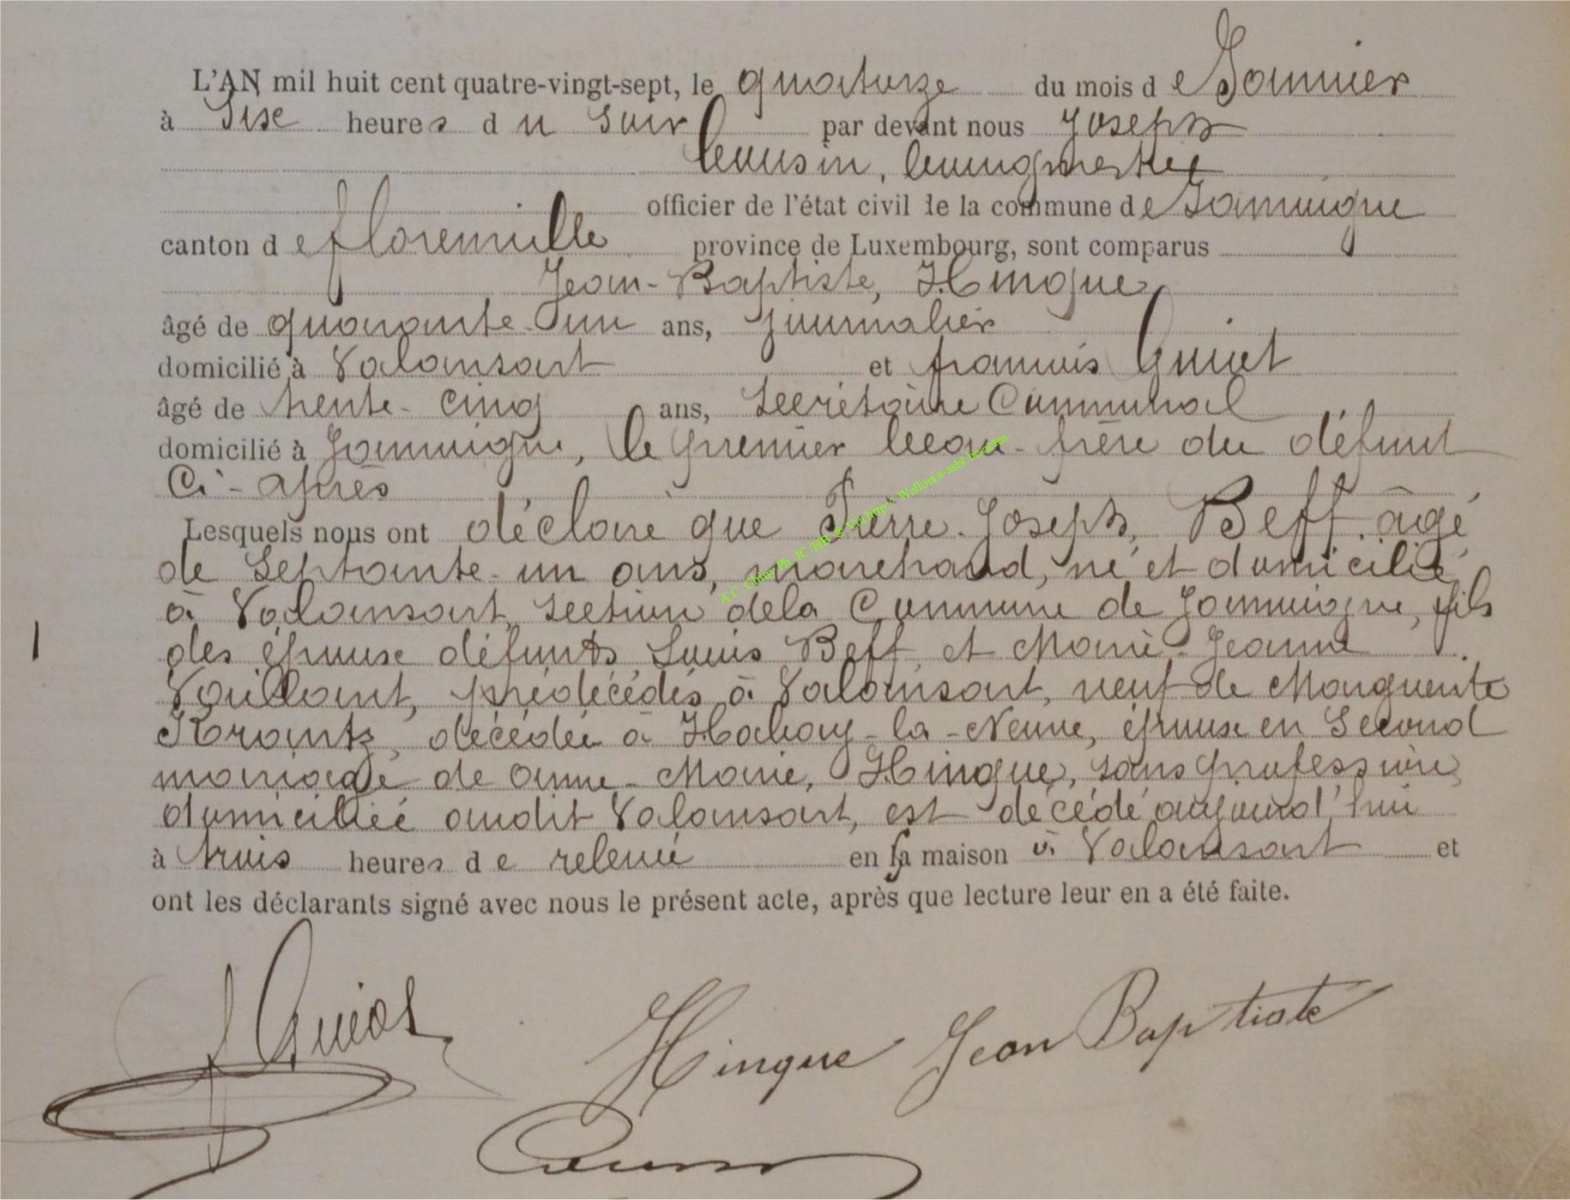 L'AN mil huit cent quatre-vingt-sept, le quatorze du mois de Janvier
à Sise heures du Soir par devant nous Joseph
Cousin, bourgmestre
officier de l'état civil de la commune de Jamoigne
canton de florenville province de Luxembourg, sont comparus
Jean-Baptiste, Hinque,
âgé de quarante-un ans, journalier
domicilié à Valansart et françois Guiot
âgé de trente-cinq ans, Secrétaire Communal
domicilié à Jamoigne, le premier beau-frère du défunt
Ci-après
Lesquels nous ont déclaré que Pierre-Joseph, Beff, âgé
de Septante-un ans, marchand, né et domicilié
à Valansart, section de la Commune de Jamoigne, fils
des épouse défunts Louis Beff, et Marie-Jeanne
Vaillant, prédécédés à Valansart, veuf de Marguerite
Krantz, décédée à Habay-la-Neuve, épouse en Second
mariage de anne-Marie, Hinque, sans profession,
domiciliée audit Valansart, est décédé aujourd'hui
à trois heures de relevée en sa maison à Valansart et
ont les déclarants signé avec nous le présent acte, après que lecture leur en a été faite.
f Guiot
Hinque Jean Baptiste
Cousin